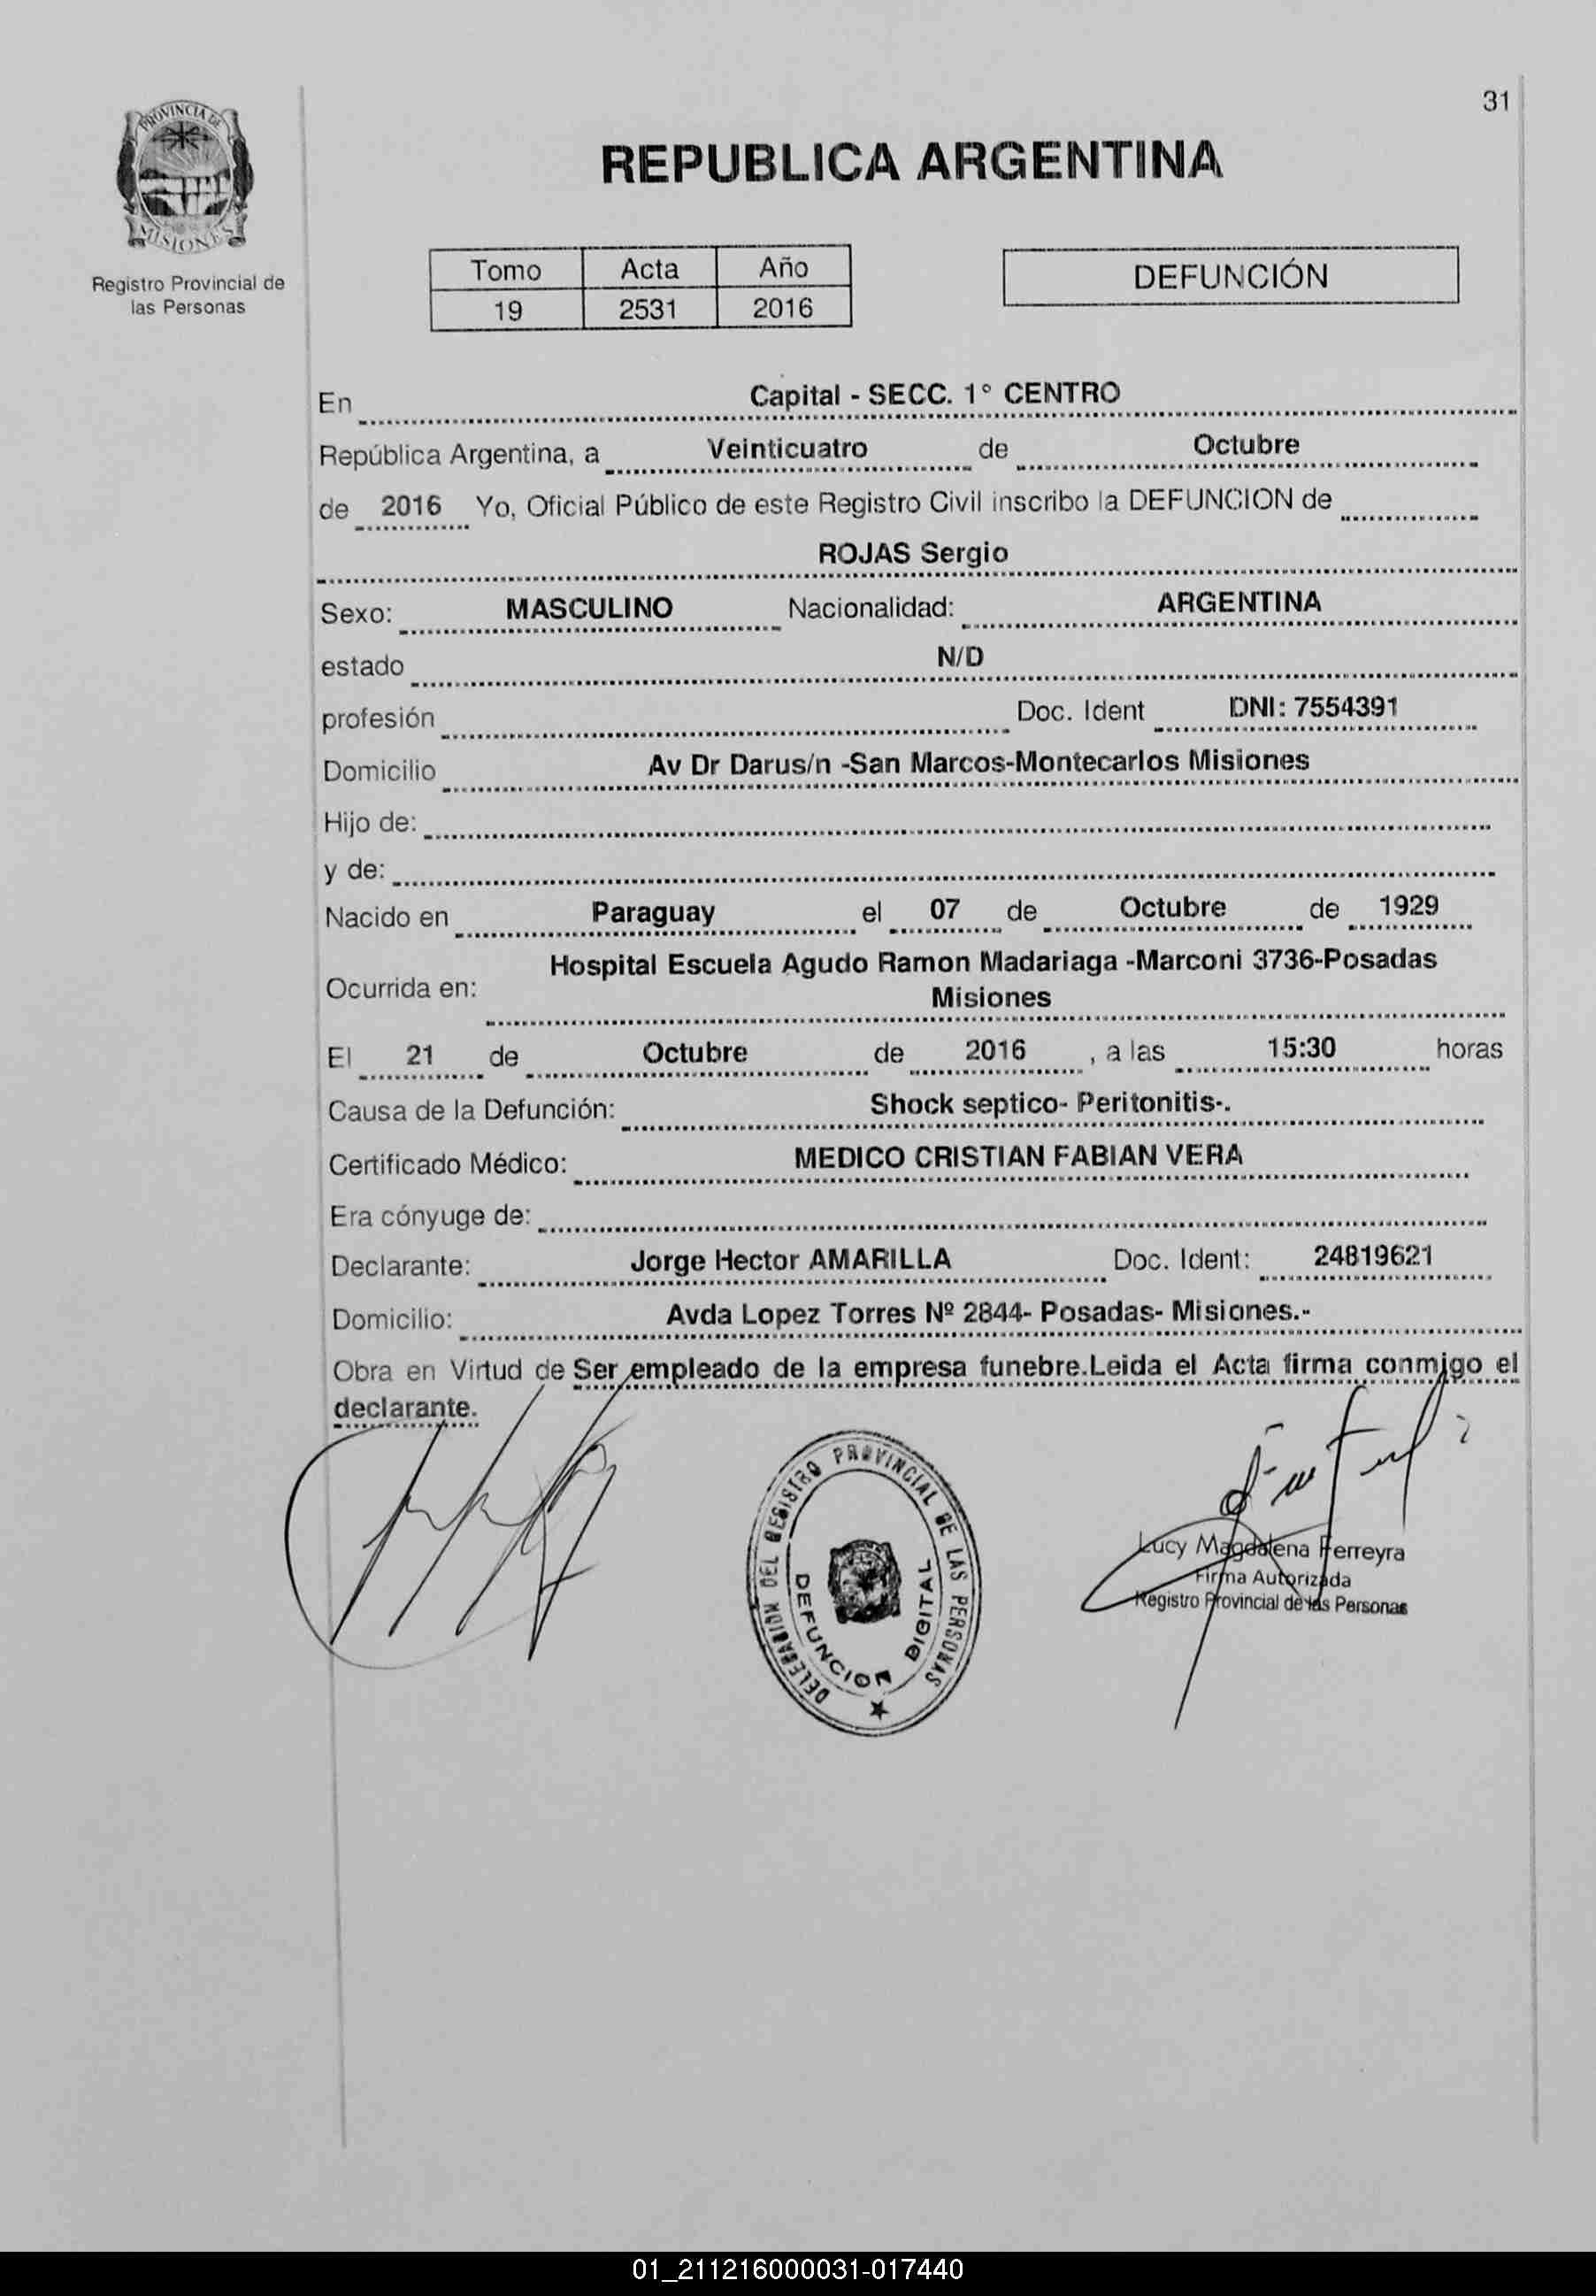 31
PROVINCIA DE
MISIONES
Registro Provincial de
las Personas
REPUBLICA ARGENTINA
Tomo Acta Año
19 2531 2016
DEFUNCIÓN
En Capital - SECC. 1° CENTRO
República Argentina, a Veinticuatro de Octubre
de 2016 Yo, Oficial Público de este Registro Civil inscribo la DEFUNCION de
ROJAS Sergio
Sexo: MASCULINO Nacionalidad: ARGENTINA
estado N/D
profesión Doc. Ident DNI: 7554391
Domicilio Av Dr Darus/n -San Marcos-Montecarlos Misiones
Hijo de:
y de:
Nacido en Paraguay el 07 de Octubre de 1929
Ocurrida en: Hospital Escuela Agudo Ramon Madariaga -Marconi 3736-Posadas
Misiones
El 21 de Octubre de 2016 , a las 15:30 horas
Causa de la Defunción: Shock septico- Peritonitis-.
Certificado Médico: MEDICO CRISTIAN FABIAN VERA
Era cónyuge de:
Declarante: Jorge Hector AMARILLA Doc. Ident: 24819621
Domicilio: Avda Lopez Torres Nº 2844- Posadas- Misiones.-
Obra en Virtud de Ser empleado de la empresa funebre.Leida el Acta firma conmigo el
declarante.
DELEGACION DEL REGISTRO PROVINCIAL DE LAS PERSONAS
DEFUNCION DIGITAL
Lucy Magdalena Ferreyra
Firma Autorizada
Registro Provincial de las Personas
01_211216000031-017440